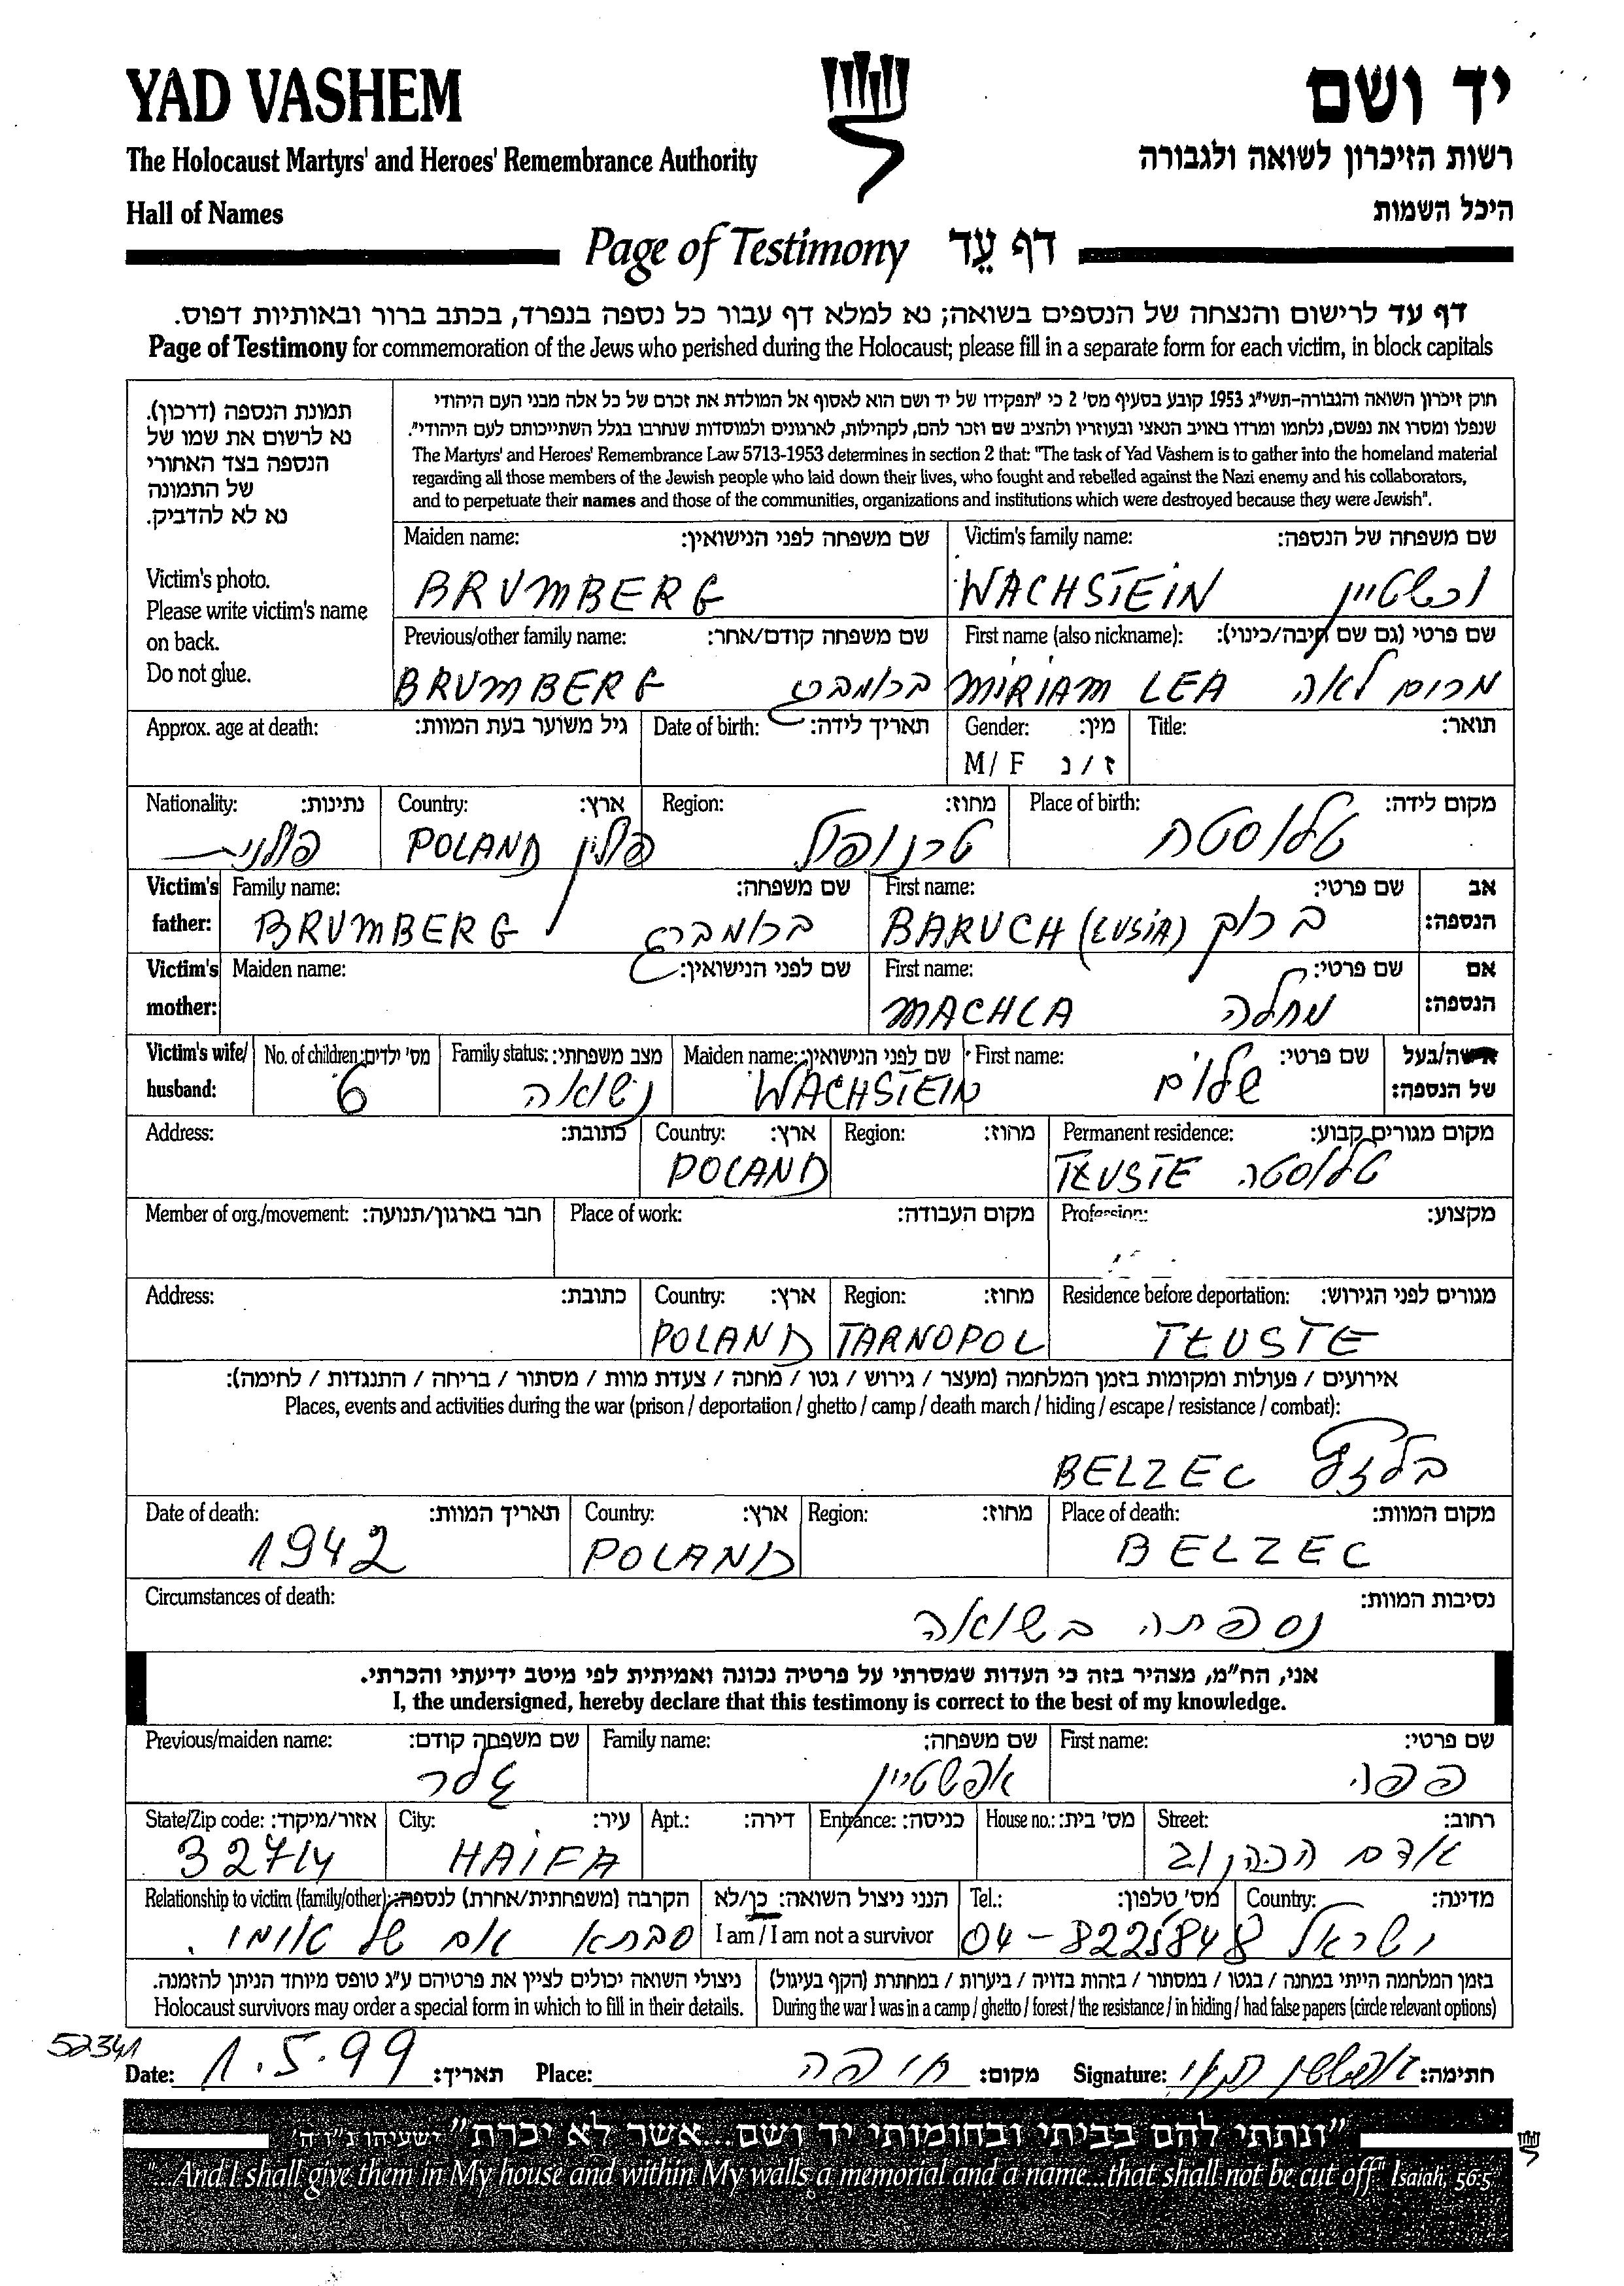 YAD VASHEM
יד ושם
The Holocaust Martyrs' and Heroes' Remembrance Authority
רשות הזיכרון לשואה ולגבורה
Hall of Names
היכל השמות
Page of Testimony דף עֵד
דף עד לרישום והנצחה של הנספים בשואה; נא למלא דף עבור כל נספה בנפרד, בכתב ברור ובאותיות דפוס.
Page of Testimony for commemoration of the Jews who perished during the Holocaust; please fill in a separate form for each victim, in block capitals
תמונת הנספה (דרכון).
נא לרשום את שמו של
הנספה בצד האחורי
של התמונה
נא לא להדביק.
Victim's photo.
Please write victim's name
on back.
Do not glue.
חוק זיכרון השואה והגבורה-תשי"ג 1953 קובע בסעיף מס' 2 כי "תפקידו של יד ושם הוא לאסוף אל המולדת את זכרם של כל אלה מבני העם היהודי
שנפלו ומסרו את נפשם, נלחמו ומרדו באויב הנאצי ובעוזריו ולהציב שם וזכר להם, לקהילות, לארגונים ולמוסדות שנחרבו בגלל השתייכותם לעם היהודי".
The Martyrs' and Heroes' Remembrance Law 5713-1953 determines in section 2 that: "The task of Yad Vashem is to gather into the homeland material
regarding all those members of the Jewish people who laid down their lives, who fought and rebelled against the Nazi enemy and his collaborators,
and to perpetuate their names and those of the communities, organizations and institutions which were destroyed because they were Jewish".
Maiden name: שם משפחה לפני הנישואין: Victim's family name: שם משפחה של הנספה:
BRUMBERG WACHSTEIN וכשטיין
Previous/other family name: שם משפחה קודם/אחר: First name (also nickname): שם פרטי (גם שם חיבה/כינוי):
BRUMBERG ברומברג MIRIAM LEA מרים לאה
Approx. age at death: גיל משוער בעת המוות: Date of birth: תאריך לידה: Gender: מין: Title: תואר:
M/ F ז/נ
Nationality: נתינות: Country: ארץ: Region: מחוז: Place of birth: מקום לידה:
פולנית POLAND פולין טרנופול טלוסטה
Victim's father: Family name: שם משפחה: First name: שם פרטי: אב הנספה:
BRUMBERG ברומברג BARUCH (LUSIA) ברוך
Victim's mother: Maiden name: שם לפני הנישואין: First name: שם פרטי: אם הנספה:
MACHLA מחלה
Victim's wife/ husband: No. of children: מס' ילדים: Family status: מצב משפחתי: Maiden name: שם לפני הנישואין: First name: שם פרטי: אשה/בעל של הנספה:
6 נשואה WACHSTEIN שלום
Address: כתובת: Country: ארץ: Region: מחוז: Permanent residence: מקום מגורים קבוע:
POLAND TŁUSTE טלוסטה
Member of org./movement: חבר בארגון/תנועה: Place of work: מקום העבודה: Profession: מקצוע:
Address: כתובת: Country: ארץ: Region: מחוז: Residence before deportation: מגורים לפני הגירוש:
POLAND TARNOPOL TŁUSTE
אירועים / פעולות ומקומות בזמן המלחמה (מעצר / גירוש / גטו / מחנה / צעדת מוות / מסתור / בריחה / התנגדות / לחימה):
Places, events and activities during the war (prison / deportation / ghetto / camp / death march / hiding / escape / resistance / combat):
BELZEC בלזץ
Date of death: תאריך המוות: Country: ארץ: Region: מחוז: Place of death: מקום המוות:
1942 POLAND BELZEC
Circumstances of death: נסיבות המוות:
נספתה בשואה
אני, הח"מ, מצהיר בזה כי העדות שמסרתי על פרטיה נכונה ואמיתית לפי מיטב ידיעתי והכרתי.
I, the undersigned, hereby declare that this testimony is correct to the best of my knowledge.
Previous/maiden name: שם משפחה קודם: Family name: שם משפחה: First name: שם פרטי:
אפשטיין פפה
State/Zip code: אזור/מיקוד: City: עיר: Apt.: דירה: Entrance: כניסה: House no.: מס' בית: Street: רחוב:
32714 HAIFA אדם הכהן
Relationship to victim (family/other): הקרבה (משפחתית/אחרת) לנספה: הנני ניצול השואה: כן/לא Tel.: מס' טלפון: Country: מדינה:
סבתא אם של אומי. I am / I am not a survivor 04-8225848 ישראל
ניצולי השואה יכולים לציין את פרטיהם ע"ג טופס מיוחד הניתן להזמנה. בזמן המלחמה הייתי במחנה / בגטו / במסתור / בזהות בדויה / ביערות / במחתרת (הקף בעיגול)
Holocaust survivors may order a special form in which to fill in their details. During the war I was in a camp / ghetto / forest / the resistance / in hiding / had false papers (circle relevant options)
52341
Date: 1.5.99 תאריך: Place: חיפה מקום: Signature: חתימה:
"ונתתי להם בביתי ובחומותי יד ושם...אשר לא יכרת" ישעיהו נ"ו ה'
"...And I shall give them in My house and within My walls a memorial and a name...that shall not be cut off." Isaiah 56:5